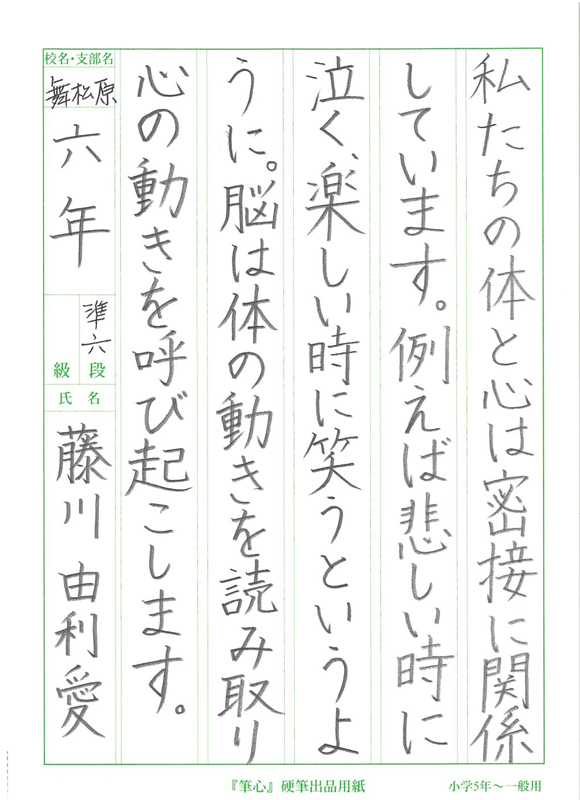 私たちの体と心は密接に関係
しています。例えば悲しい時に
泣く、楽しい時に笑うというよ
うに。脳は体の動きを読み取り
心の動きを呼び起こします。
校名・支部名
舞松原
六年
準六
級段
氏名
藤川由利愛
『筆心』硬筆出品用紙
小学5年〜一般用